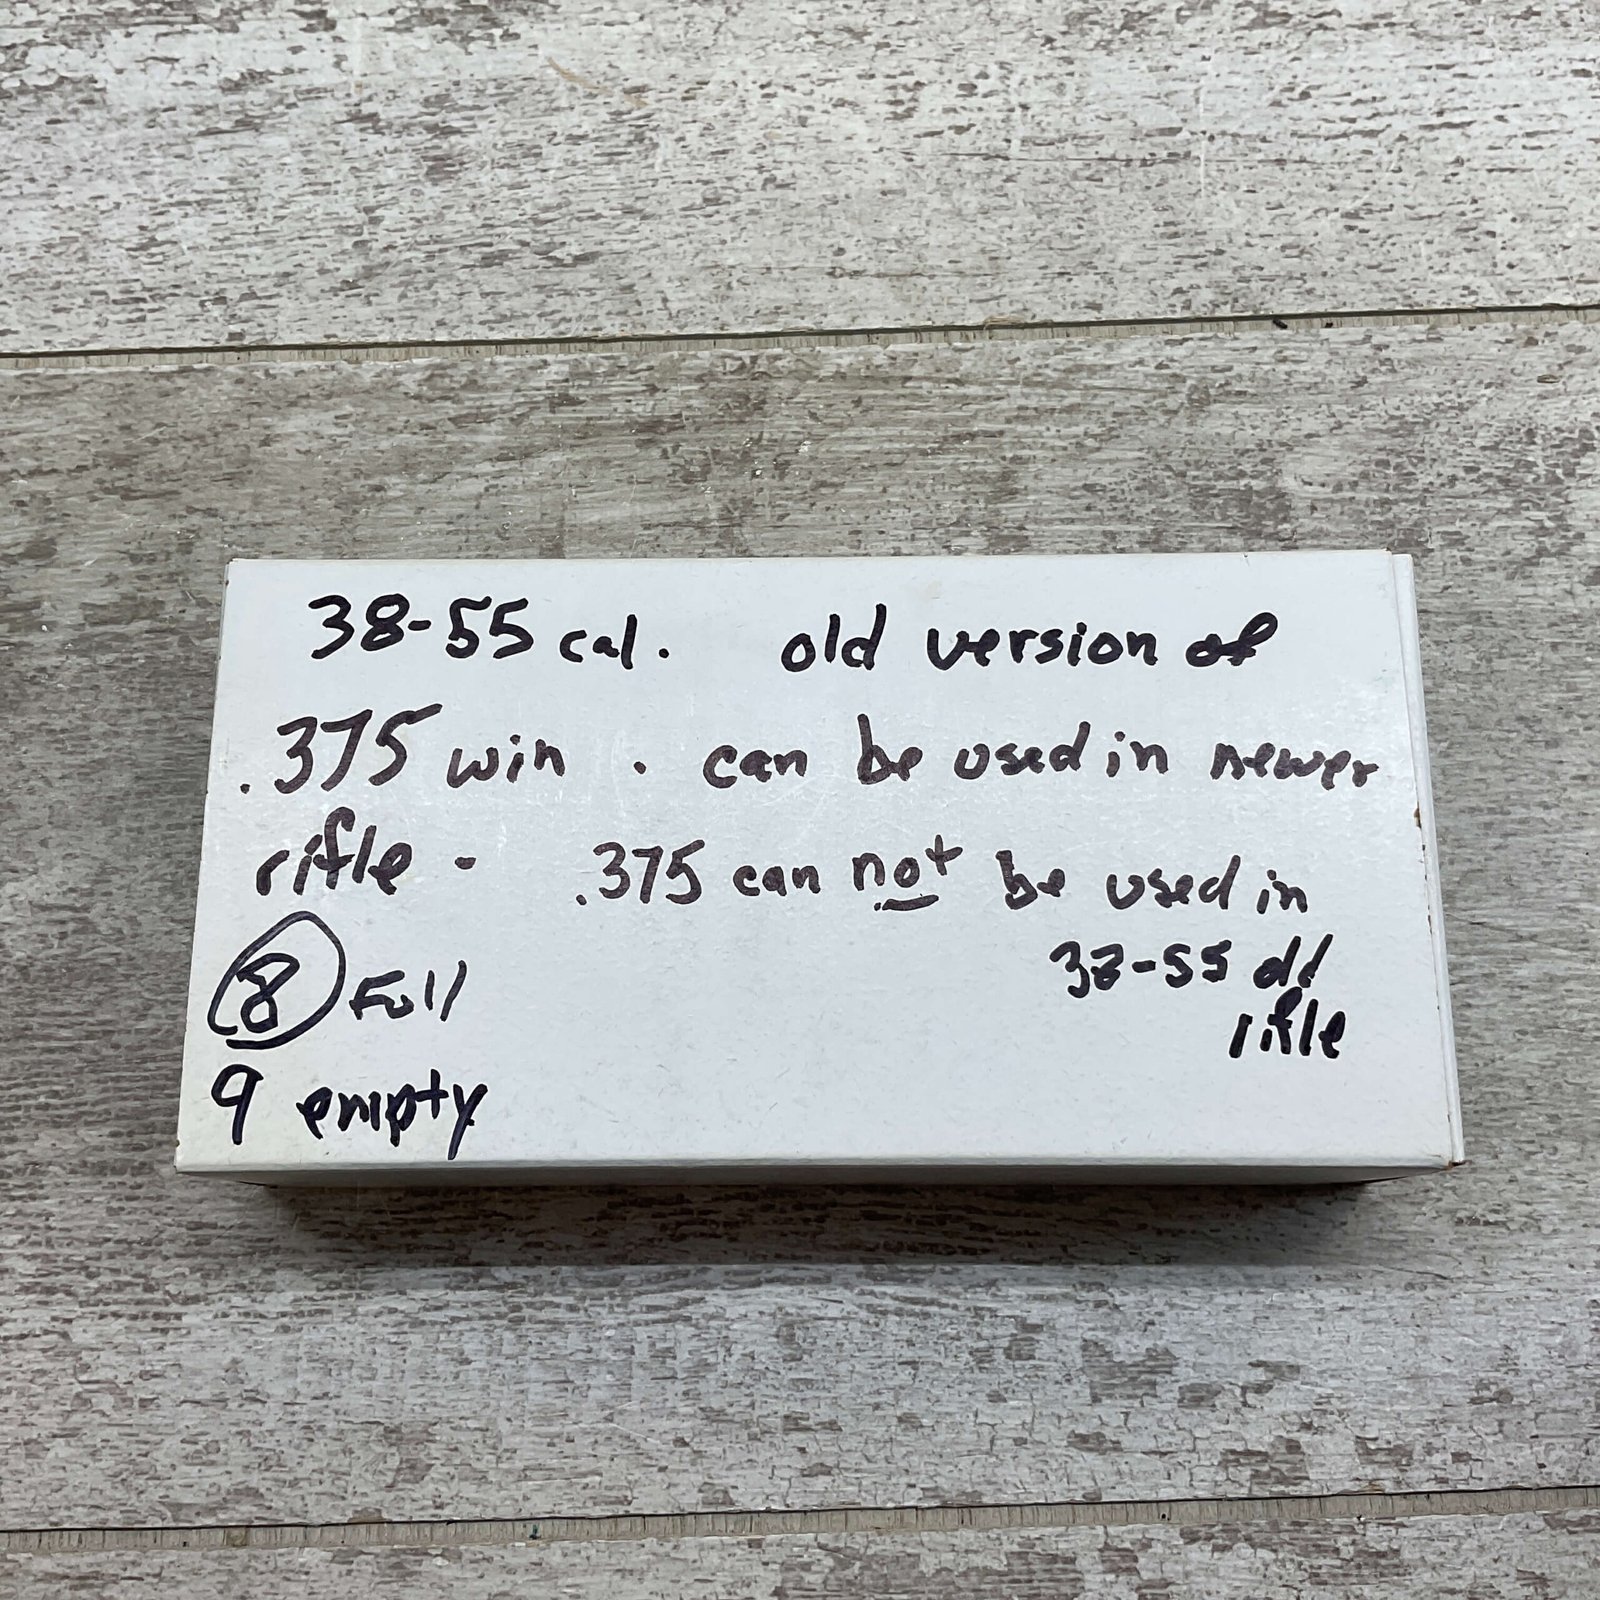 38-55 cal. old version of
.375 win . can be used in newer
rifle - .375 can not be used in
38-55 old
rifle
8 Full
9 empty